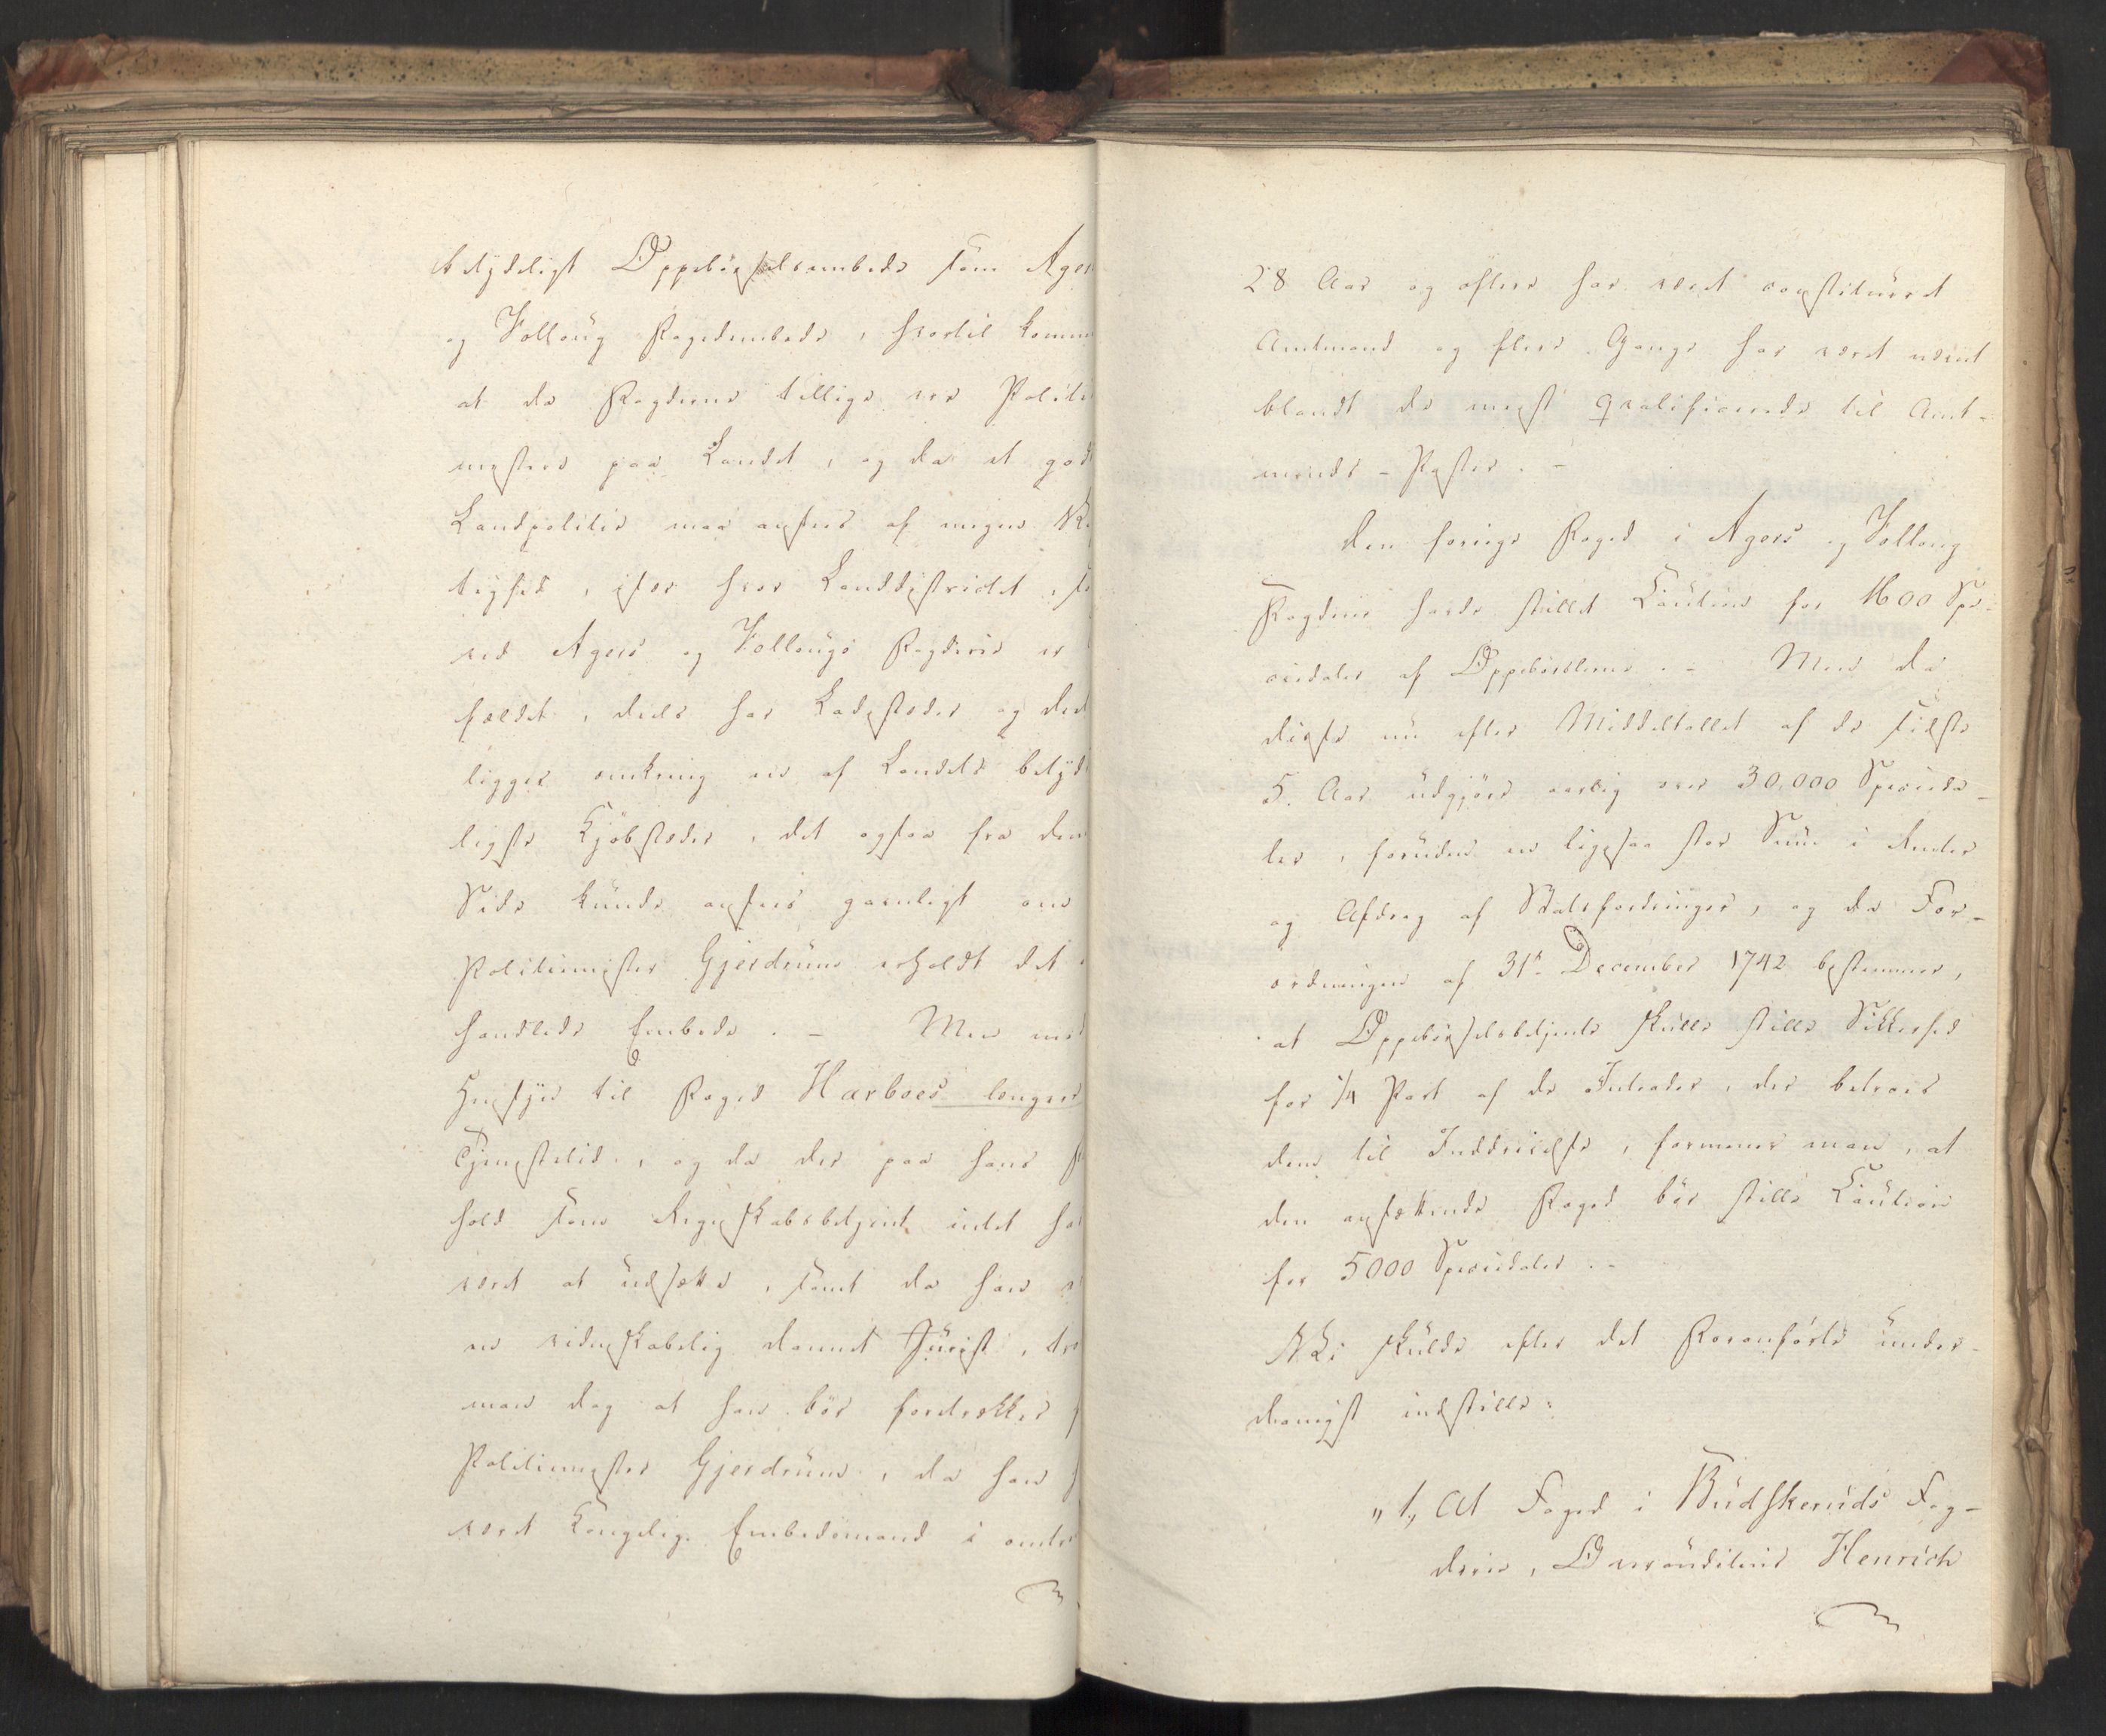 betydeligt Oppebørselsembede som Ager
og Folloug Fogedembede, hvortil komm
at da Fogderne tillige ere Politi
mestere paa Landet, og da et godt
Landpolitie maa ansees af megen Vi
tighed, især hvor Landdistrictet, so
ved Agers og Follougs Fogderie er
fældet, deels har Ladesteder og deel
ligger omkring een af Landets betyd
ligste Kjøbstæder, det ogsaa fra den
Side kunde ansees gavnligt om
Politiemester Gjerdrum erholdt det
handlede Embede. – Men med
Hensyn til Foged Harboes længere
Tjenestetid, og da der paa hans
hold som Regnskabsbetjent intet ha
været at udsætte, samt da han
en videnskabelig dannet Jurist, tro
man dog at han bør foretrækkes
Politiemester Gjerdrum, da han
været Kongelig Embedsmand i omtr
28 Aar og oftere har været constitueret
Amtmand og flere Gange har været nævnt
blandt de mest qvalificerede til Amt-
mands-Poster. –
Den forrige Foged i Agers og Folloug
Fogderie havde stillet Caution for 1600 Spe-
ciedaler af Oppebørslerne. – Men da
disse nu efter Middeltallet af de sidste
5 Aar udgjøre aarlig over 30,000 Specieda-
ler, foruden en ligesaa stor Sum i Renter
og Afdrag af Statsfordringer, og da For-
ordningen af 31te December 1742 bestemmer,
at Oppebørselsbetjente skulle stille Sikkerhed
for 1/4 Part af de Intrader, der betroes
dem til Inddrivelse, formener man, at
den ansættende Foged bør stille Caution
for 5000 Speciedaler. –
Vi skulde efter det Foranførte under-
danigst indstille:
"1, At Foged i Budskeruds Fog-
derie, Overauditeur Henrich